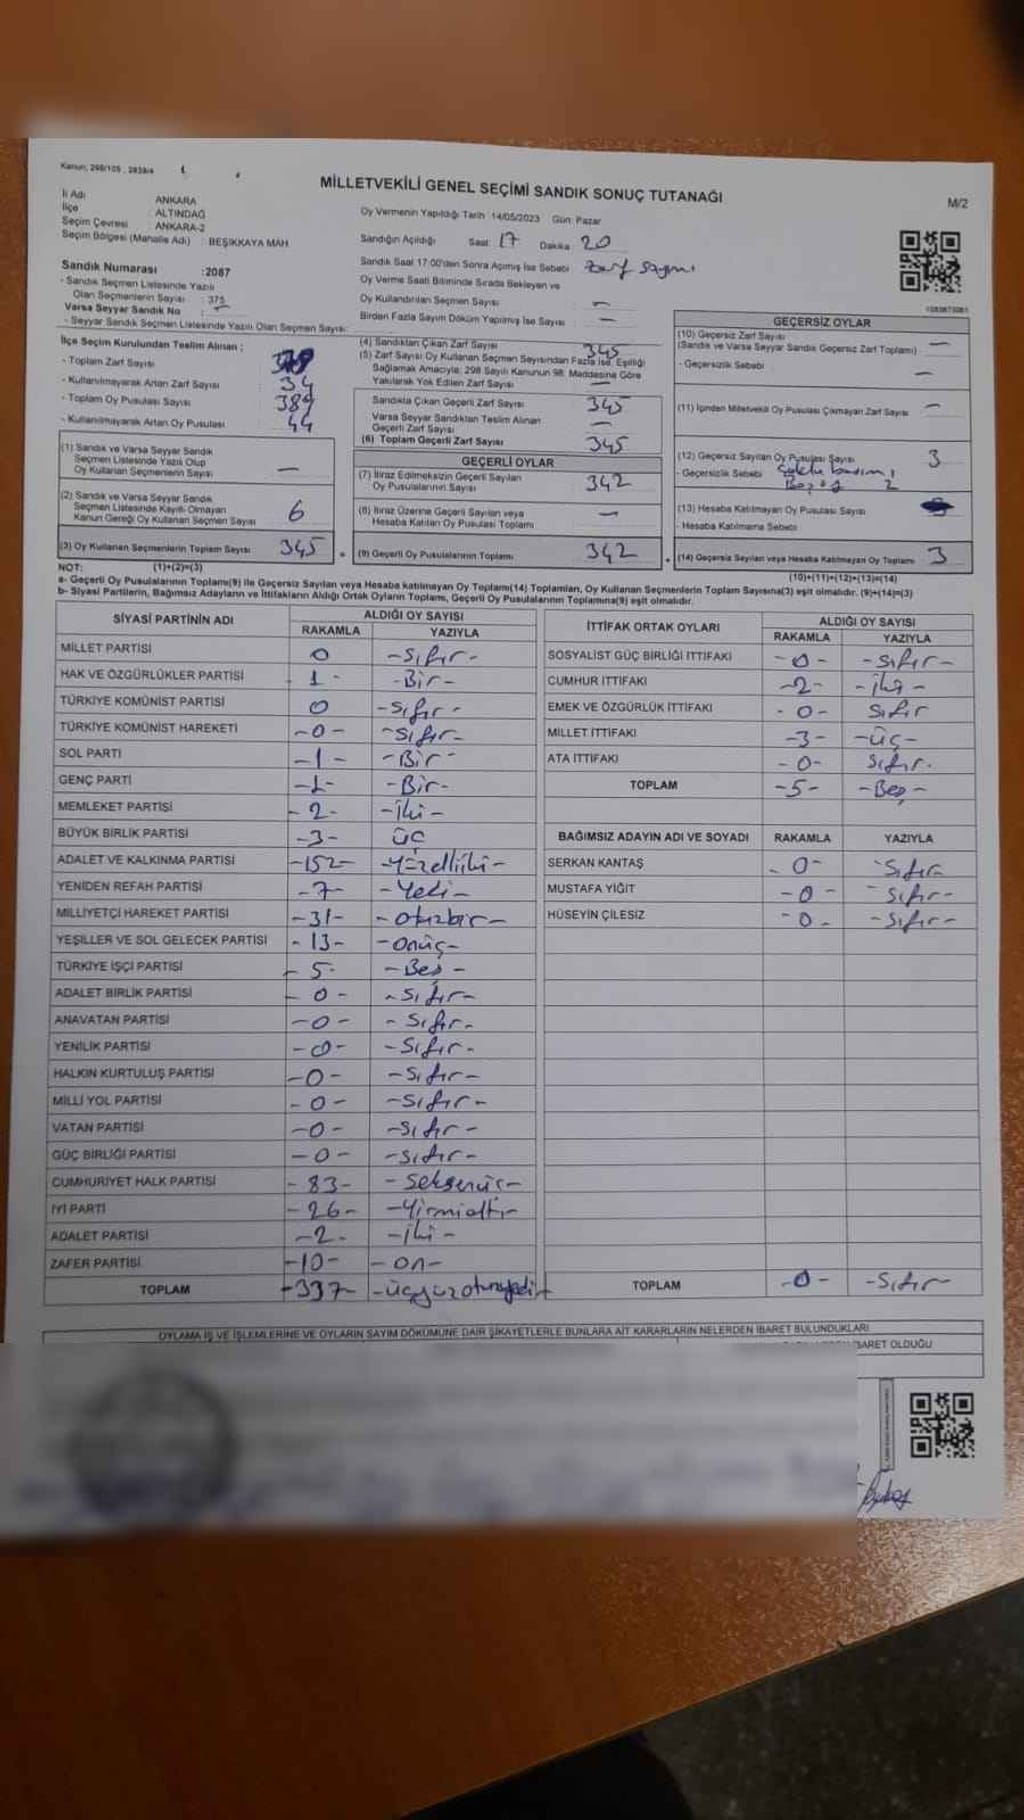 Kanun; 298/105, 2839/4
MİLLETVEKİLİ GENEL SEÇİMİ SANDIK SONUÇ TUTANAĞI
M/2
İl Adı ANKARA
İlçe : ALTINDAĞ
Seçim Çevresi : ANKARA-2
Seçim Bölgesi (Mahalle Adı) : BEŞİKKAYA MAH.
Oy Vermenin Yapıldığı Tarih : 14/05/2023 Gün: Pazar
Sandığın Açıldığı Saat: 17 Dakika 20
Sandık Saat 17:00'den Sonra Açılmış İse Sebebi Zarf Sayımı
Oy Verme Saati Bitiminde Sırada Bekleyen ve
Oy Kullandırılan Seçmen Sayısı —
Birden Fazla Sayım Döküm Yapılmış İse Sayısı —
Sandık Numarası :2087
- Sandık Seçmen Listesinde Yazılı
Olan Seçmenlerin Sayısı : 375
Varsa Seyyar Sandık No :
- Seyyar Sandık Seçmen Listesinde Yazılı Olan Seçmen Sayısı:
İlçe Seçim Kurulundan Teslim Alınan ;
- Toplam Zarf Sayısı
- Kullanılmayarak Artan Zarf Sayısı 34
- Toplam Oy Pusulası Sayısı 389
- Kullanılmayarak Artan Oy Pusulası 44
(1) Sandık ve Varsa Seyyar Sandık
Seçmen Listesinde Yazılı Olup
Oy Kullanan Seçmenlerin Sayısı —
(2) Sandık ve Varsa Seyyar Sandık
Seçmen Listesinde Kayıtlı Olmayan
Kanun Gereği Oy Kullanan Seçmen Sayısı 6
(3) Oy Kullanan Seçmenlerin Toplam Sayısı 345
(4) Sandıktan Çıkan Zarf Sayısı 345
(5) Zarf Sayısı Oy Kullanan Seçmen Sayısından Fazla İse, Eşitliği
Sağlamak Amacıyla; 298 Sayılı Kanunun 98. Maddesine Göre
Yakılarak Yok Edilen Zarf Sayısı —
Sandıkta Çıkan Geçerli Zarf Sayısı 345
Varsa Seyyar Sandıktan Teslim Alınan
Geçerli Zarf Sayısı —
(6) Toplam Geçerli Zarf Sayısı 345
GEÇERLİ OYLAR
(7) İtiraz Edilmeksizin Geçerli Sayılan
Oy Pusulalarının Sayısı 342
(8) İtiraz Üzerine Geçerli Sayılan veya
Hesaba Katılan Oy Pusulası Toplamı —
(9) Geçerli Oy Pusulalarının Toplamı 342
GEÇERSİZ OYLAR
(10) Geçersiz Zarf Sayısı
(Sandık ve Varsa Seyyar Sandık Geçersiz Zarf Toplamı) —
- Geçersizlik Sebebi —
(11) İçinden Milletvekili Oy Pusulası Çıkmayan Zarf Sayısı —
(12) Geçersiz Sayılan Oy Pusulası Sayısı 3
- Geçersizlik Sebebi
2
(13) Hesaba Katılmayan Oy Pusulası Sayısı
- Hesaba Katılmama Sebebi
(14) Geçersiz Sayılan veya Hesaba Katılmayan Oy Toplamı 3
NOT: (1)+(2)=(3)
(10)+(11)+(12)+(13)=(14)
a- Geçerli Oy Pusulalarının Toplamı(9) ile Geçersiz Sayılan veya Hesaba katılmayan Oy Toplamı(14) Toplamları, Oy Kullanan Seçmenlerin Toplam Sayısına(3) eşit olmalıdır. (9)+(14)=(3)
b- Siyasi Partilerin, Bağımsız Adayların ve İttifakların Aldığı Ortak Oyların Toplamı, Geçerli Oy Pusulalarının Toplamına(9) eşit olmalıdır.
SİYASİ PARTİNİN ADI ALDIĞI OY SAYISI
RAKAMLA YAZIYLA
MİLLET PARTİSİ 0 -Sıfır-
HAK VE ÖZGÜRLÜKLER PARTİSİ 1- -Bir-
TÜRKİYE KOMÜNİST PARTİSİ 0 -Sıfır-
TÜRKİYE KOMÜNİST HAREKETİ -0- -Sıfır-
SOL PARTİ -1- -Bir-
GENÇ PARTİ -1- -Bir-
MEMLEKET PARTİSİ -2- -İki-
BÜYÜK BİRLİK PARTİSİ -3- üç
ADALET VE KALKINMA PARTİSİ -152- -Yüzelliiki-
YENİDEN REFAH PARTİSİ -7- -Yedi-
MİLLİYETÇİ HAREKET PARTİSİ -31- -Otuzbir-
YEŞİLLER VE SOL GELECEK PARTİSİ -13- -Onüç-
TÜRKİYE İŞÇİ PARTİSİ -5- -Beş-
ADALET BİRLİK PARTİSİ -0- -Sıfır-
ANAVATAN PARTİSİ -0- -Sıfır-
YENİLİK PARTİSİ -0- -Sıfır-
HALKIN KURTULUŞ PARTİSİ -0- -Sıfır-
MİLLİ YOL PARTİSİ -0- -Sıfır-
VATAN PARTİSİ -0- -Sıfır-
GÜÇ BİRLİĞİ PARTİSİ -0- -Sıfır-
CUMHURİYET HALK PARTİSİ -83- -Seksenüç-
İYİ PARTİ -26- -Yirmialtı-
ADALET PARTİSİ -2- -İki-
ZAFER PARTİSİ -10- -On-
TOPLAM -337- -üçyüzotuzyedi-
İTTİFAK ORTAK OYLARI ALDIĞI OY SAYISI
RAKAMLA YAZIYLA
SOSYALİST GÜÇ BİRLİĞİ İTTİFAKI -0- -Sıfır-
CUMHUR İTTİFAKI -2- -İki-
EMEK VE ÖZGÜRLÜK İTTİFAKI -0- Sıfır
MİLLET İTTİFAKI -3- -Üç-
ATA İTTİFAKI -0- Sıfır.
TOPLAM -5- -Beş-
BAĞIMSIZ ADAYIN ADI VE SOYADI RAKAMLA YAZIYLA
SERKAN KANTAŞ -0- -Sıfır
MUSTAFA YİĞİT -0- -Sıfır-
HÜSEYİN ÇİLESİZ -0- -Sıfır-
TOPLAM -0- -Sıfır-
OYLAMA İŞ VE İŞLEMLERİNE VE OYLARIN SAYIM DÖKÜMÜNE DAİR ŞİKAYETLERLE BUNLARA AİT KARARLARIN NELERDEN İBARET BULUNDUKLARI
İBARET OLDUĞU